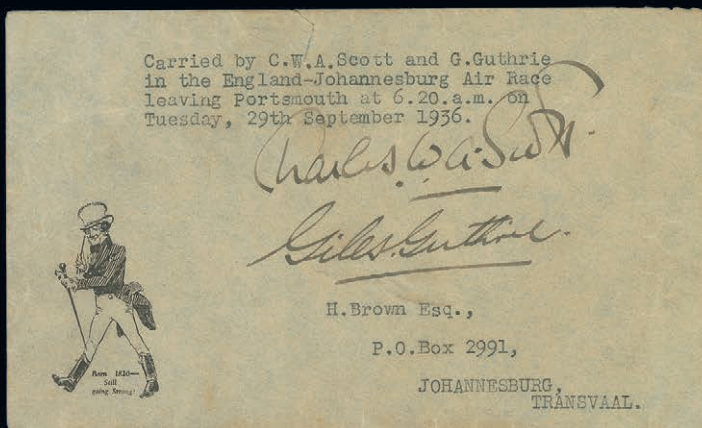 Carried by C.W.A.Scott and G.Guthrie
in the England-Johannesburg Air Race
leaving Portsmouth at 6.20.a.m. on
Tuesday, 29th September 1936.
Charles. W A. Scott.
Giles. Guthrie.
H.Brown Esq.,
P.O.Box 2991,
JOHANNESBURG,
TRANSVAAL.
Born 1820—
Still
going Strong!